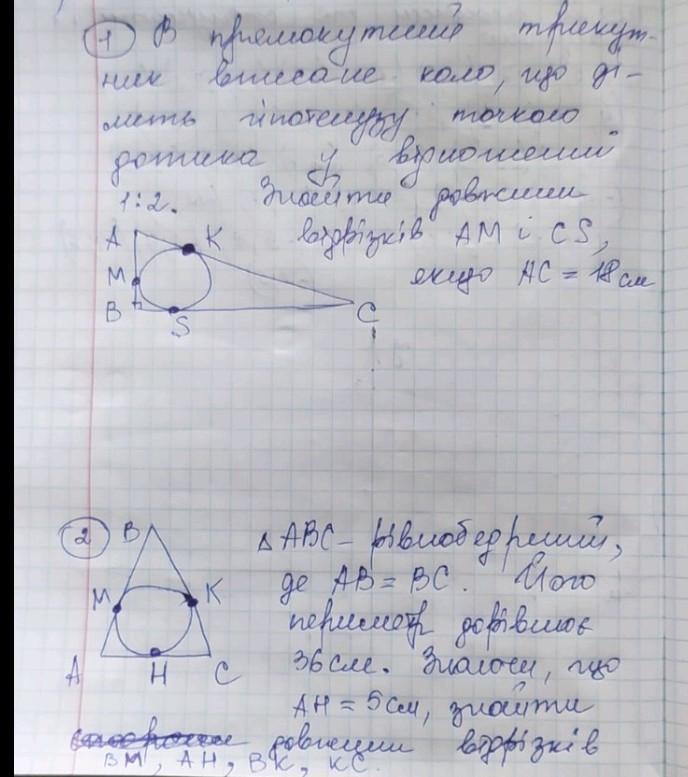 1 В прямокутний трикут-
ник вписане коло, що ді-
лить гіпотенузу точкою
дотика у відношенні
1:2. Знайти довжини
A K відрізків AM і CS,
M якщо AC = 18 см
B S C
2 B △ ABC – рівнобедрений,
де AB = BC. Його
M K периметр дорівнює
36 см. Знаючи, що
A H C
AH = 5 см, знайти
довжини відрізків
BM, AH, BK, KC.